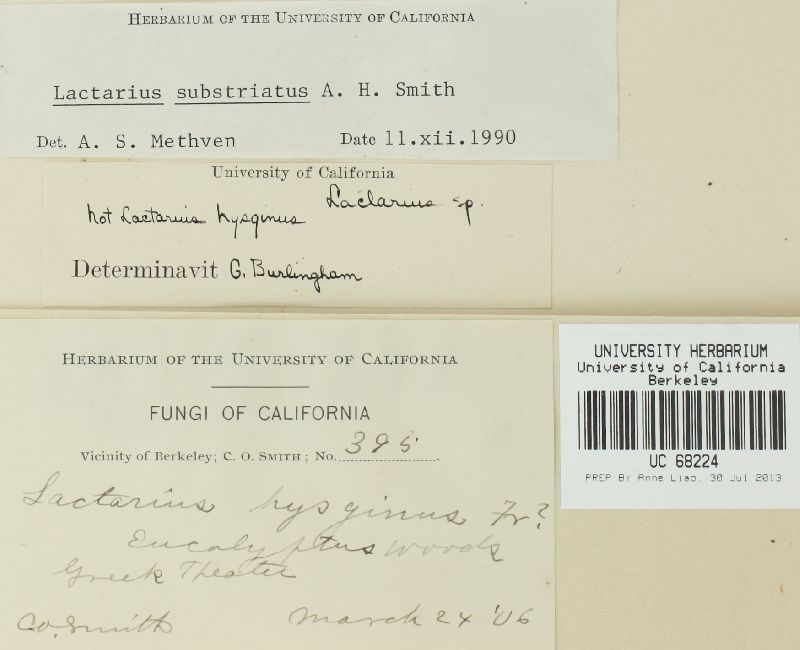 HERBARIUM OF THE UNIVERSITY OF CALIFORNIA
Lactarius substriatus A. H. Smith
Det. A. S. Methven Date 11.xii.1990
University of California
Lactarius sp.
not Lactarius hysginus
Determinavit G. Burlingham
HERBARIUM OF THE UNIVERSITY OF CALIFORNIA
FUNGI OF CALIFORNIA
Vicinity of Berkeley; C. O. SMITH; No. 395
Lactarius hysginus Fr?
Eucalyptus woods
Greek Theater
C.O. Smith March 24 '06
UNIVERSITY HERBARIUM
University of California
Berkeley
UC 68224
PREP BY Anne Liao, 30 Jul 2013